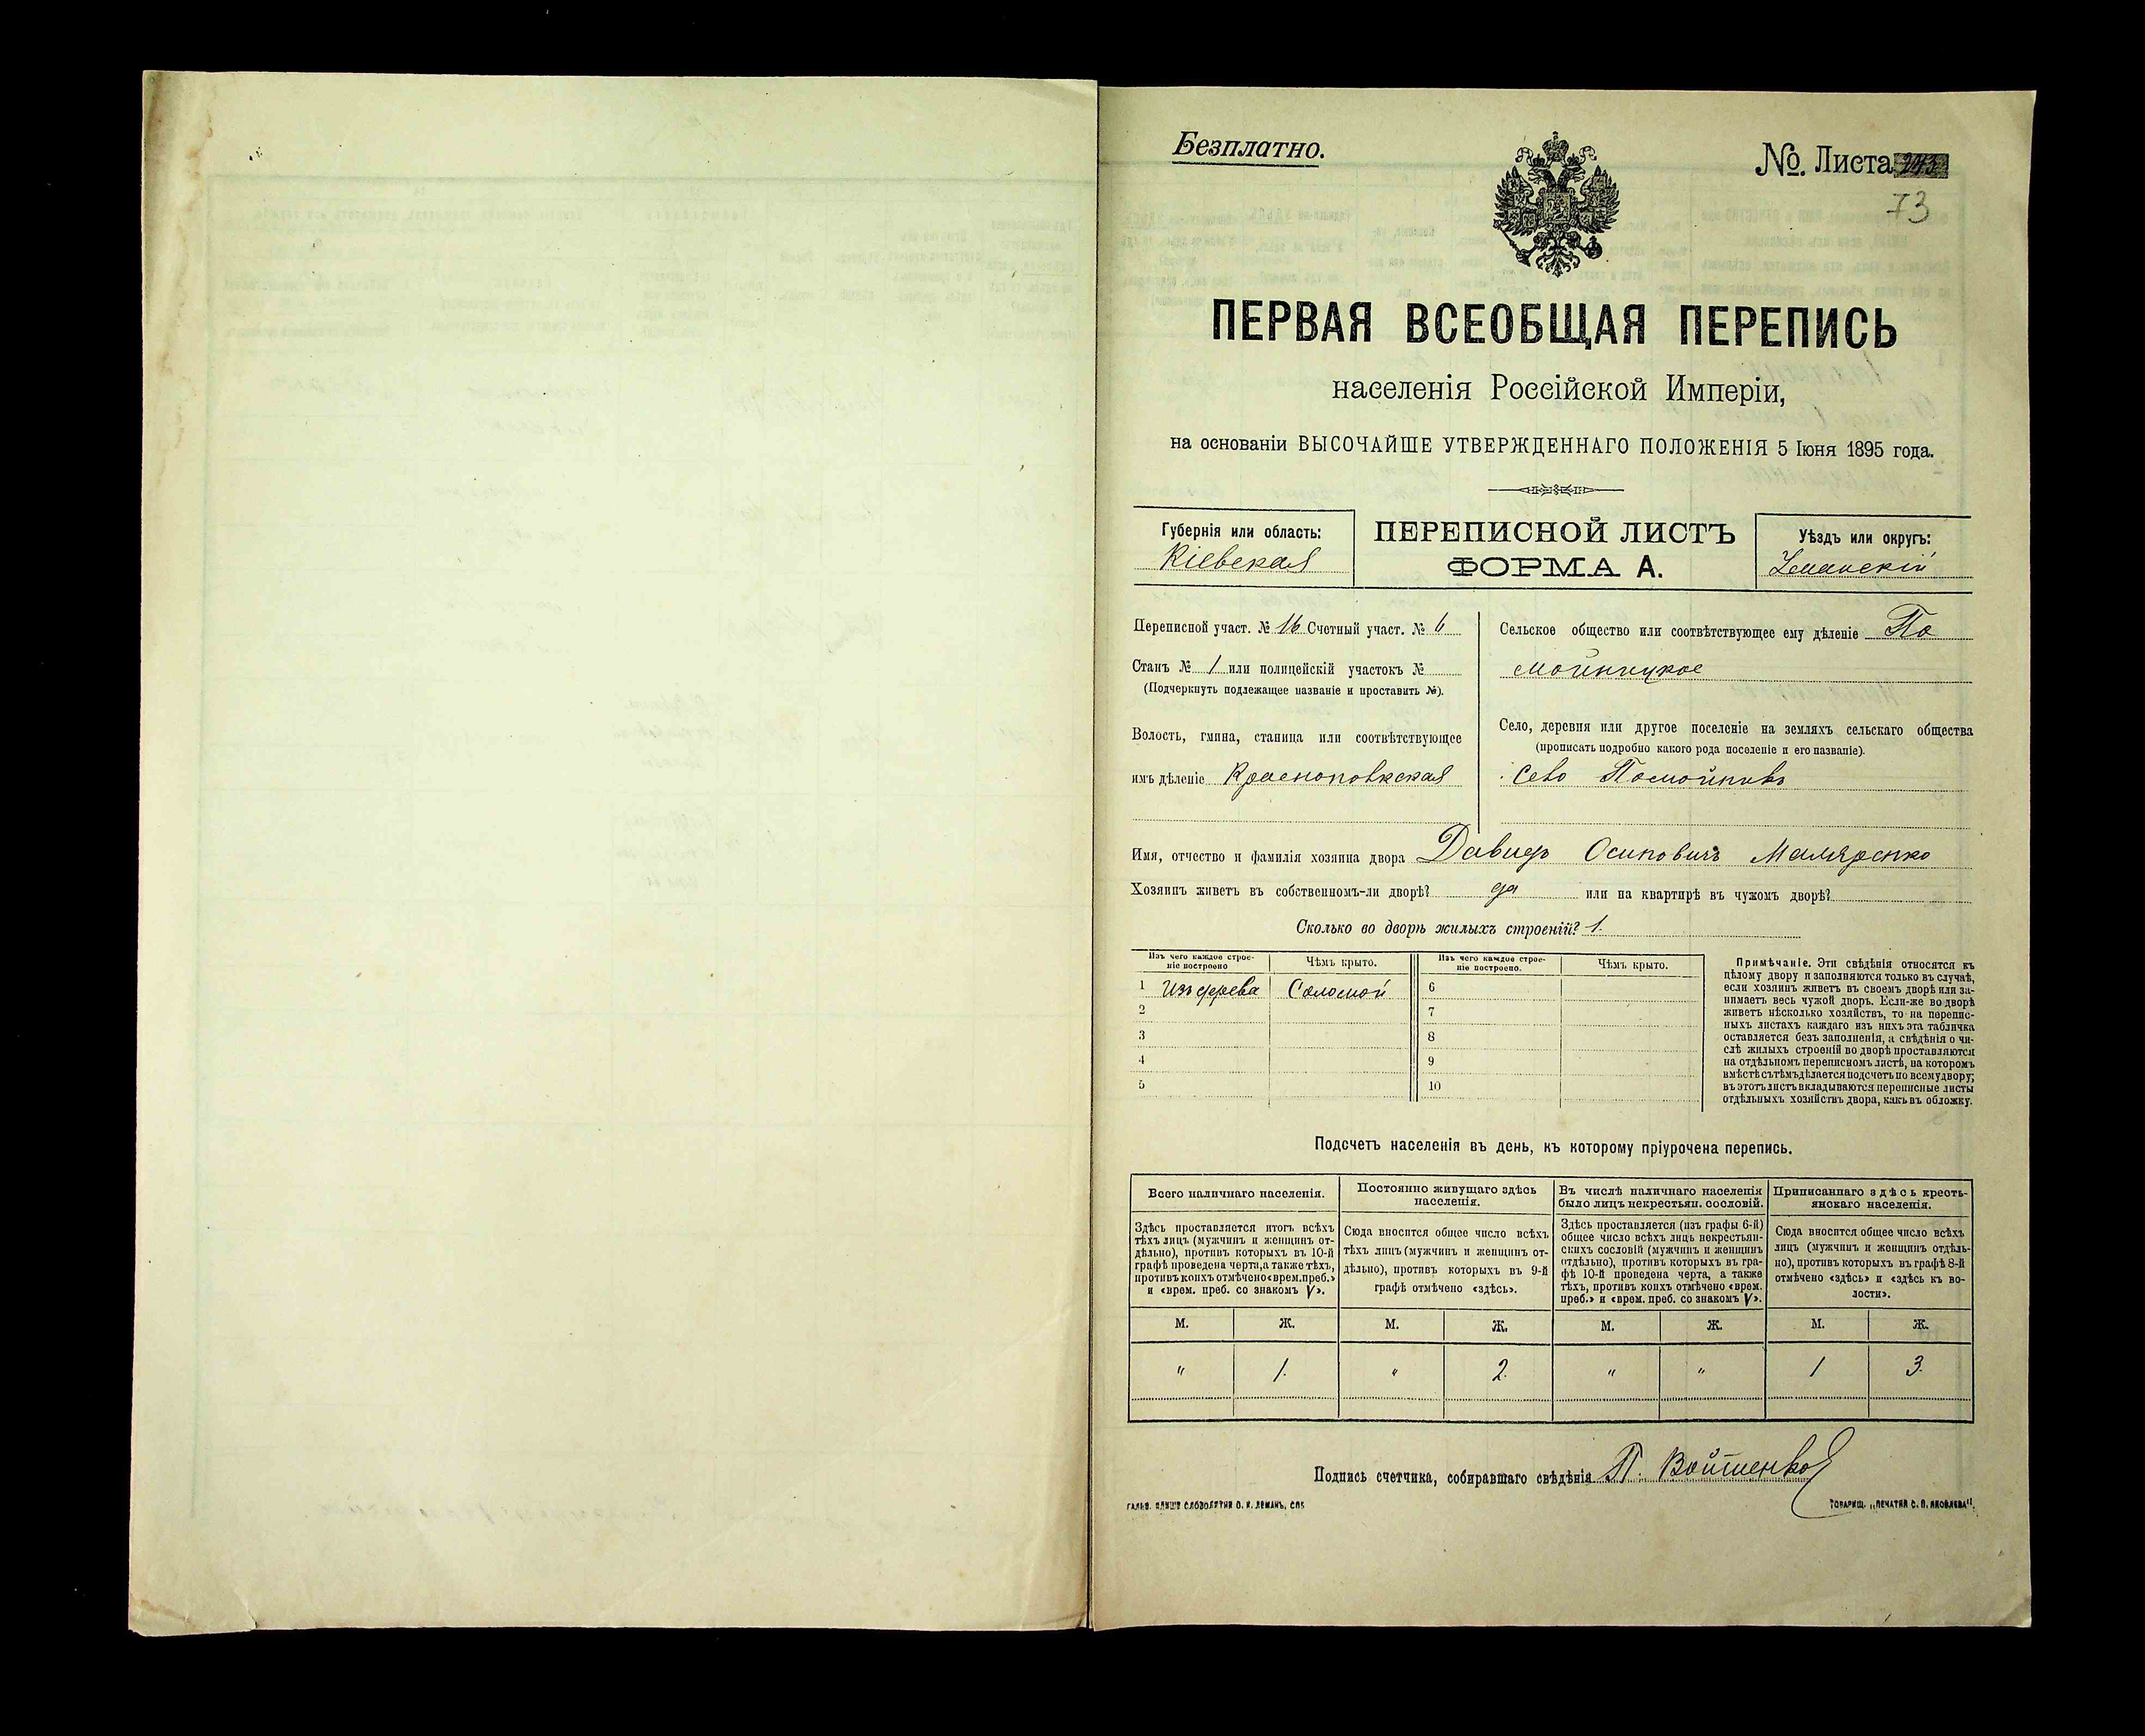 Безплатно.
№. Листа 243
73
ПЕРВАЯ ВСЕОБЩАЯ ПЕРЕПИСЬ
населенія Россійской Имперіи,
на основаніи ВЫСОЧАЙШЕ УТВЕРЖДЕННАГО ПОЛОЖЕНІЯ 5 Іюня 1895 года.
Губернія или область:
Кіевская
ПЕРЕПИСНОЙ ЛИСТЪ
ФОРМА А.
Уѣздъ или округъ:
Уманскій
Переписной участ. № 16 Счетный участ. № 6
Станъ № 1 или полицейскій участокъ №
(Подчеркнуть подлежащее названіе и проставить №).
Волость, гмина, станица или соотвѣтствующее
имъ дѣленіе Краснополкская
Сельское общество или соотвѣтствующее ему дѣленіе По
мойницкое
Село, деревня или другое поселеніе на земляхъ сельскаго общества
(прописать подробно какого рода поселеніе и его названіе).
Село Помойникъ
Имя, отчество и фамилія хозяина двора Давидъ Осиповичъ Маляренко
Хозяинъ живетъ въ собственномъ-ли дворѣ? да или на квартирѣ въ чужомъ дворѣ?
Сколько во дворѣ жилыхъ строеній? 1.
Изъ чего каждое строе-
ніе построено
Чѣмъ крыто.
Изъ чего каждое строе-
ніе построено.
Чѣмъ крыто.
1 Изъ дерева Соломой 6
2 7
3 8
4 9
5 10
Примѣчаніе. Эти свѣдѣнія относятся къ
цѣлому двору и заполняются только въ случаѣ,
если хозяинъ живетъ въ своемъ дворѣ или за-
нимаетъ весь чужой дворъ. Если-же во дворѣ
живетъ нѣсколько хозяйствъ, то на перепис-
ныхъ листахъ каждаго изъ нихъ эта табличка
оставляется безъ заполненія, а свѣдѣнія о чи-
слѣ жилыхъ строеній во дворѣ проставляются
на отдѣльномъ переписномъ листѣ, на которомъ
вмѣстѣ съ тѣмъ дѣлается подсчетъ по всему двору;
въ этотъ листъ вкладываются переписные листы
отдѣльныхъ хозяйствъ двора, какъ въ обложку.
Подсчетъ населенія въ день, къ которому пріурочена перепись.
Всего наличнаго населенія.
Здѣсь проставляется итогъ всѣхъ
тѣхъ лицъ (мужчинъ и женщинъ от-
дѣльно), противъ которыхъ въ 10-й
графѣ проведена черта, а также тѣхъ,
противъ коихъ отмѣчено «врем. преб.»
и «врем. преб. со знакомъ V».
Постоянно живущаго здѣсь
населенія.
Сюда вносится общее число всѣхъ
тѣхъ лицъ (мужчинъ и женщинъ от-
дѣльно), противъ которыхъ въ 9-й
графѣ отмѣчено «здѣсь».
Въ числѣ наличнаго населенія
было лицъ некрестьян. сословій.
Здѣсь проставляется (изъ графы 6-й)
общее число всѣхъ лицъ некрестьян-
скихъ сословій (мужчинъ и женщинъ
отдѣльно), противъ которыхъ въ гра-
фѣ 10-й проведена черта, а также
тѣхъ, противъ коихъ отмѣчено «врем.
преб.» и «врем. преб. со знакомъ V».
Приписаннаго здѣсь кресть-
янскаго населенія.
Сюда вносится общее число всѣхъ
лицъ (мужчинъ и женщинъ отдѣль-
но), противъ которыхъ въ графѣ 8-й
отмѣчено «здѣсь» и «здѣсь къ во-
лости».
М. Ж. М. Ж. М. Ж. М. Ж.
" 1. " 2. " " 1 3.
Подпись счетчика, собиравшаго свѣдѣнія П. Войтенко
ГАЛЬВ. КЛИШЕ СЛОВОЛИТНИ О. И. ЛЕМАНЪ, СПБ
ТОВАРИЩ. „ПЕЧАТНЯ С. П. ЯКОВЛЕВА".